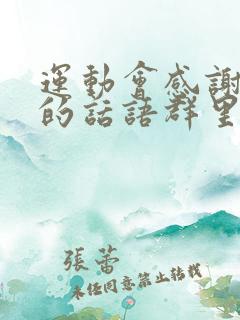 運動會感謝
的話語群里
張蕾
未經同意禁止轉載